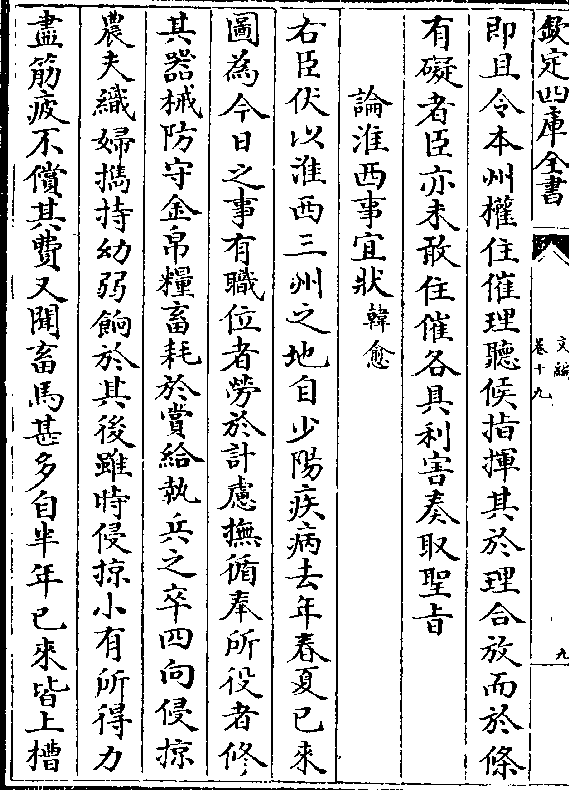 欽定四庫全書
文編
卷十九
九
即且令本州權住催理聽候指揮其於理合放而於條
有礙者臣亦未敢住催各具利害奏取聖旨
論淮西事宜狀 韓愈
右臣伏以淮西三州之地自少陽疾病去年春夏已來
圖為今日之事有職位者勞於計慮撫循奉所役者修
其器械防守金帛糧畜耗於賞給執兵之卒四向侵掠
農夫織婦擕持幼弱餉於其後雖時侵掠小有所得力
盡筋疲不償其費又聞畜馬甚多自半年已來皆上槽